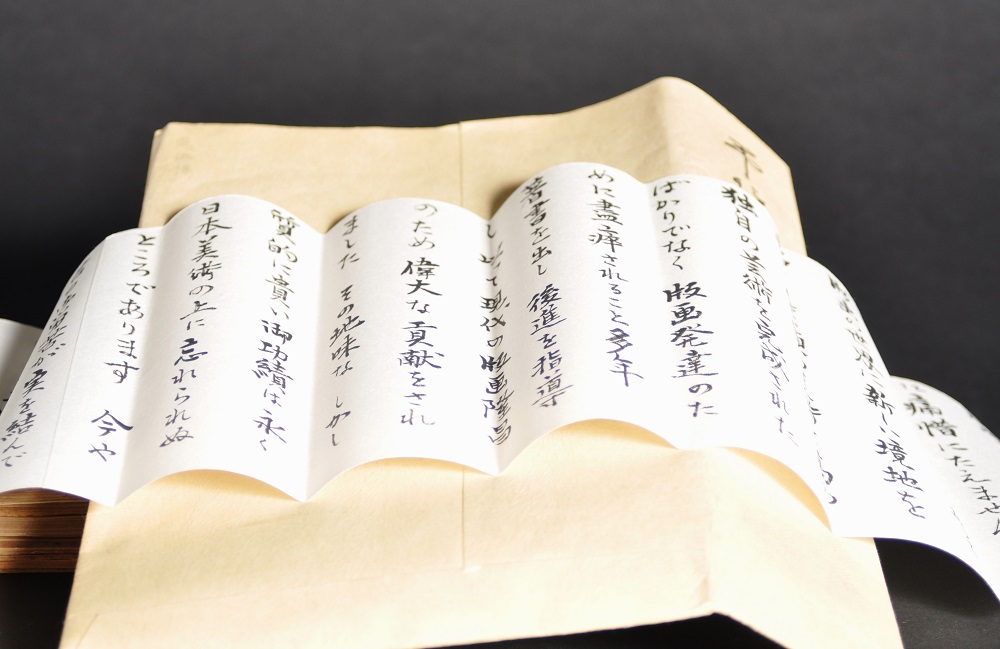 痛惜にたえません
新しい境地を
独自の芸術を完成された
ばかりでなく 版画発達のた
めに盡瘁されること多年
著書を出し 後進を指導
して現代の版画隆昌
のため 偉大な貢献をされ
ました その地味な しかし
質的に貴い御功績は永く
日本美術の上に忘れられぬ
ところであります 今や
が実を結んで